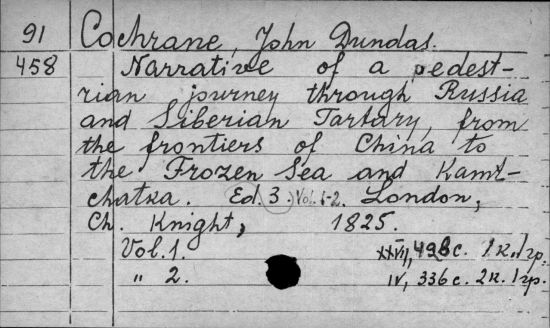 91 Cochrane, John Dundas.
458 Narrative of a pedest-
rian journey through Russia
and Siberian Tartary, from
the frontiers of China to
the Frozen Sea and Kamt-
chatka. Ed. 3. Vol. 1-2. London,
Ch. Knight, 1825.
Vol. 1. XXVII, 428 с. 1 к., 1 гр.
" 2. IV, 336 с. 2 к. 1 гр.